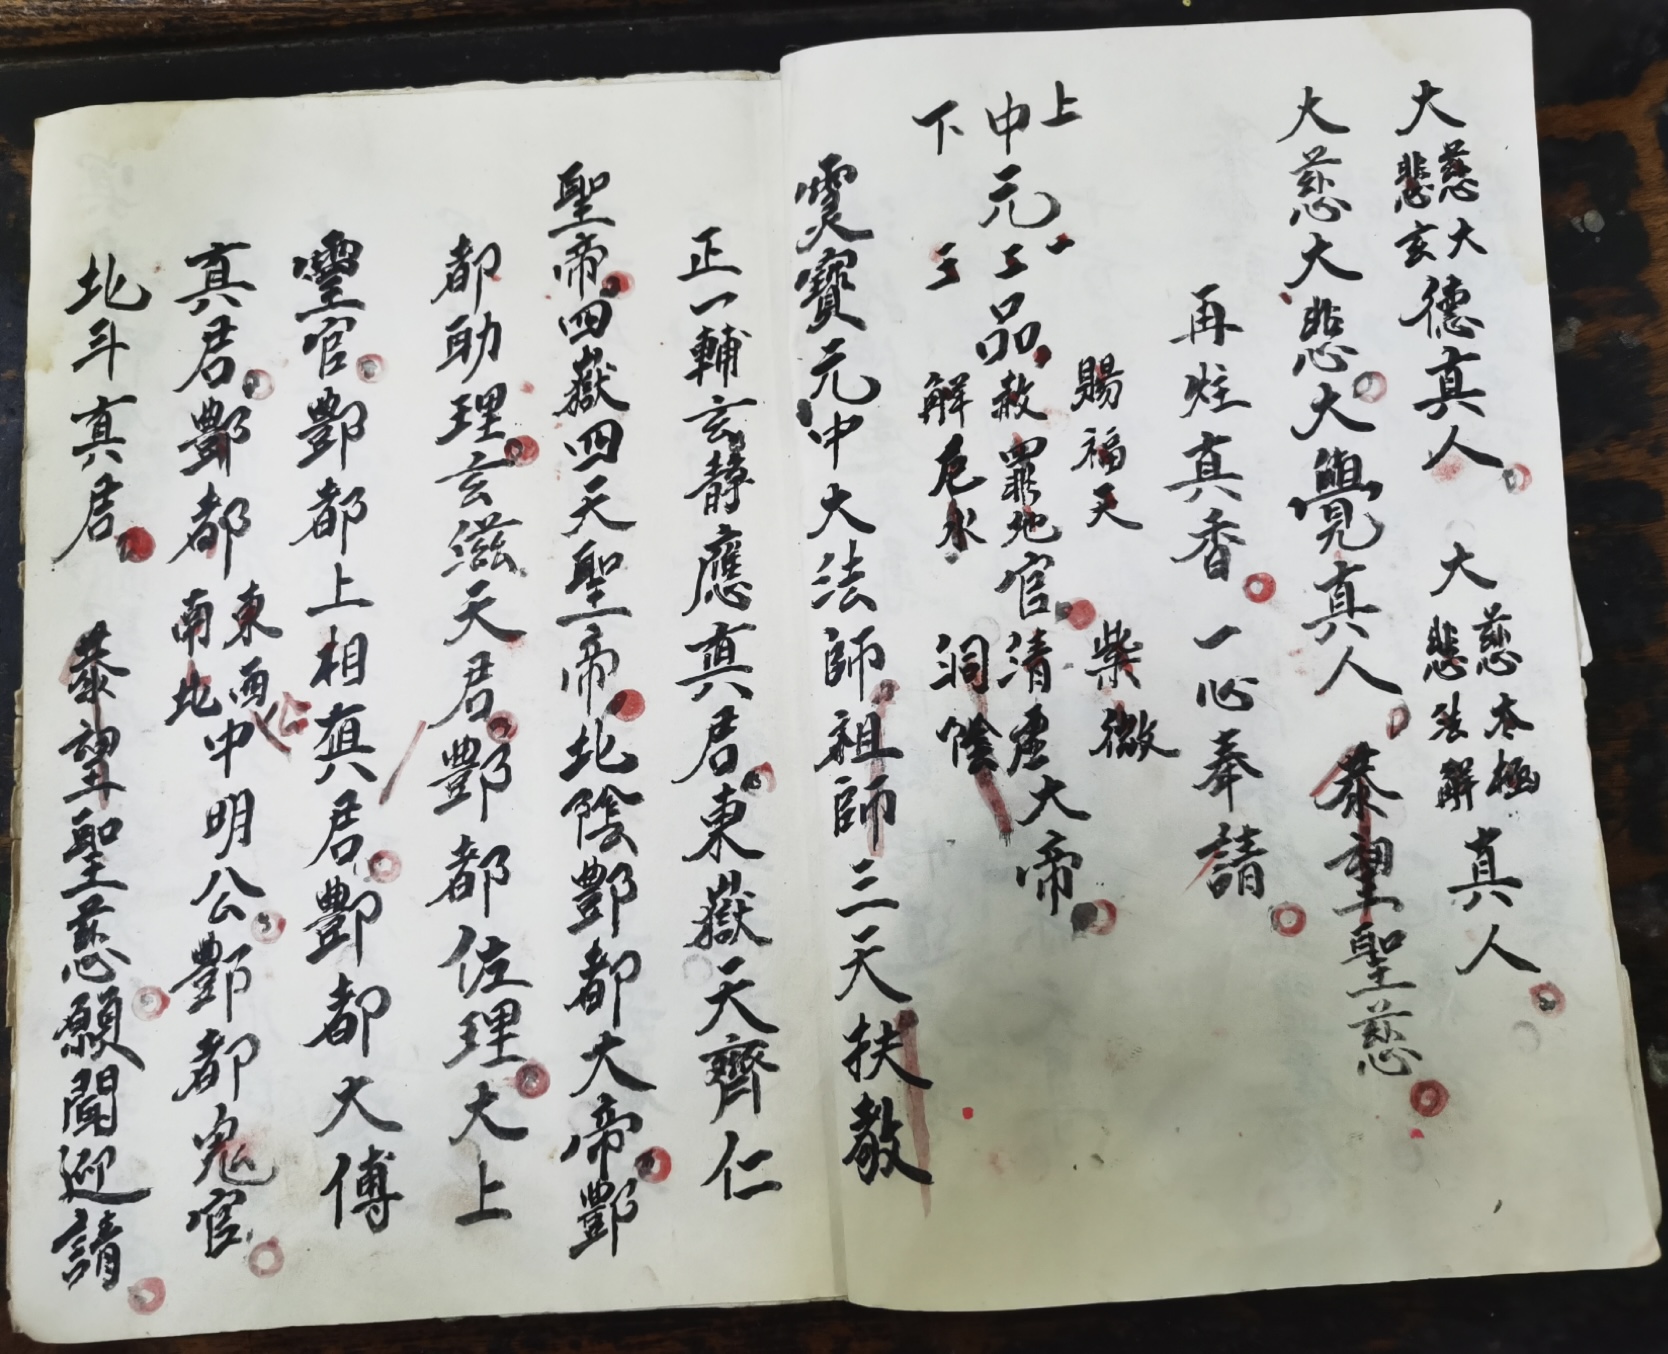 大慈大悲玄德真人 大慈太極悲法解真人
大慈大悲大覺真人 恭望聖慈
再炷真香 一心奉請
上 一 賜福天 紫微
中元二品赦罪地官清虛大帝
下 三 解厄水 洞陰
靈寶元中大法師祖師三天扶教
正一輔玄靜應真君東嶽天齊仁
聖帝四嶽四天聖帝北陰酆都大帝酆
都助理玄滋天君酆都佐理大上
靈官酆都上相真君酆都大傅
真君酆都東西南北中明公酆都鬼官
北斗真君 恭望聖慈願聞迎請